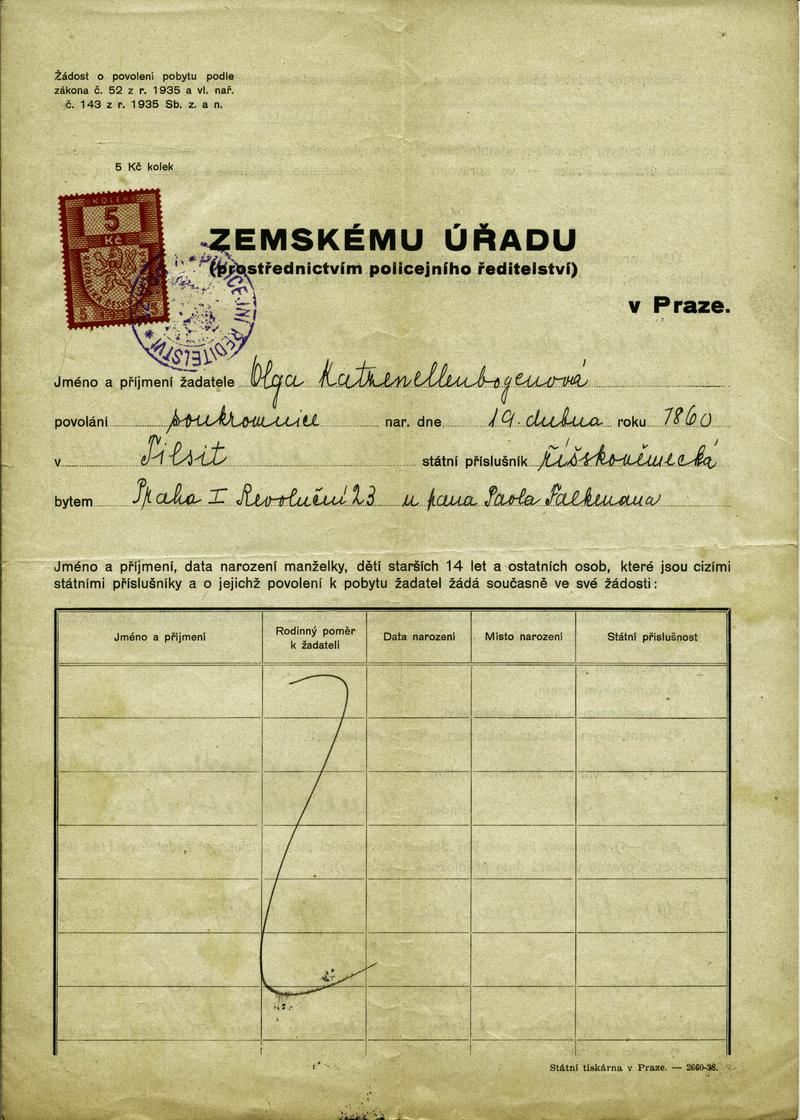 Žádost o povolení pobytu podle
zákona č. 52 z r. 1935 a vl. nař.
č. 143 z r. 1935 Sb. z. a n.
5 Kč kolek
KOLEK
5
Kč
ZEMSKÉMU ÚŘADU
(prostřednictvím policejního ředitelství)
v Praze.
ŘEDITELSTVÍ
Jméno a příjmení žadatele Olga Katzenellenbogenová
povolání soukromnice nar. dne 19. dubna roku 1860
v Tilsit státní příslušník říšskoněmecká
bytem Praha I Revoluční 23 u pana Paola Falkmana
Jméno a příjmení, data narození manželky, dětí starších 14 let a ostatních osob, které jsou cizími
státními příslušníky a o jejichž povolení k pobytu žadatel žádá současně ve své žádosti:
Jméno a příjmení Rodinný poměr k žadateli Data narození Místo narození Státní příslušnost
Státní tiskárna v Praze. — 2660-38.